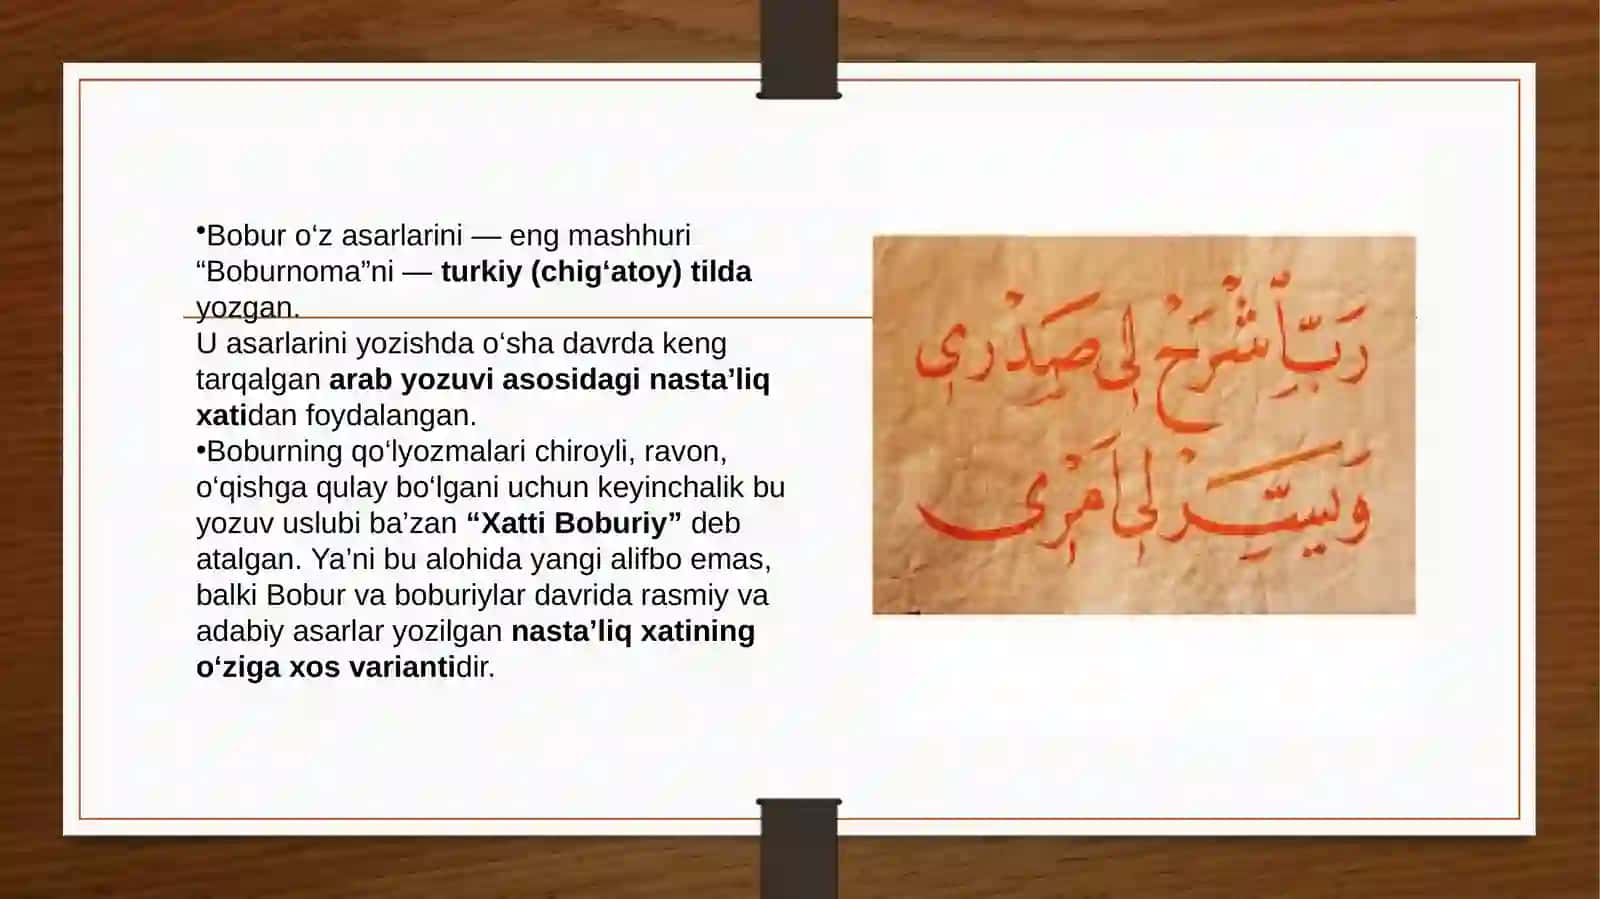 •Bobur o‘z asarlarini — eng mashhuri
“Boburnoma”ni — turkiy (chig‘atoy) tilda
yozgan.
U asarlarini yozishda o‘sha davrda keng
tarqalgan arab yozuvi asosidagi nasta’liq
xatidan foydalangan.
•Boburning qo‘lyozmalari chiroyli, ravon,
o‘qishga qulay bo‘lgani uchun keyinchalik bu
yozuv uslubi ba’zan “Xatti Boburiy” deb
atalgan. Ya’ni bu alohida yangi alifbo emas,
balki Bobur va boburiylar davrida rasmiy va
adabiy asarlar yozilgan nasta’liq xatining
o‘ziga xos variantidir.
رَبِّ ٱشْرَحْ لِى صَدْرِى
وَيَسِّرْ لِى أَمْرِى